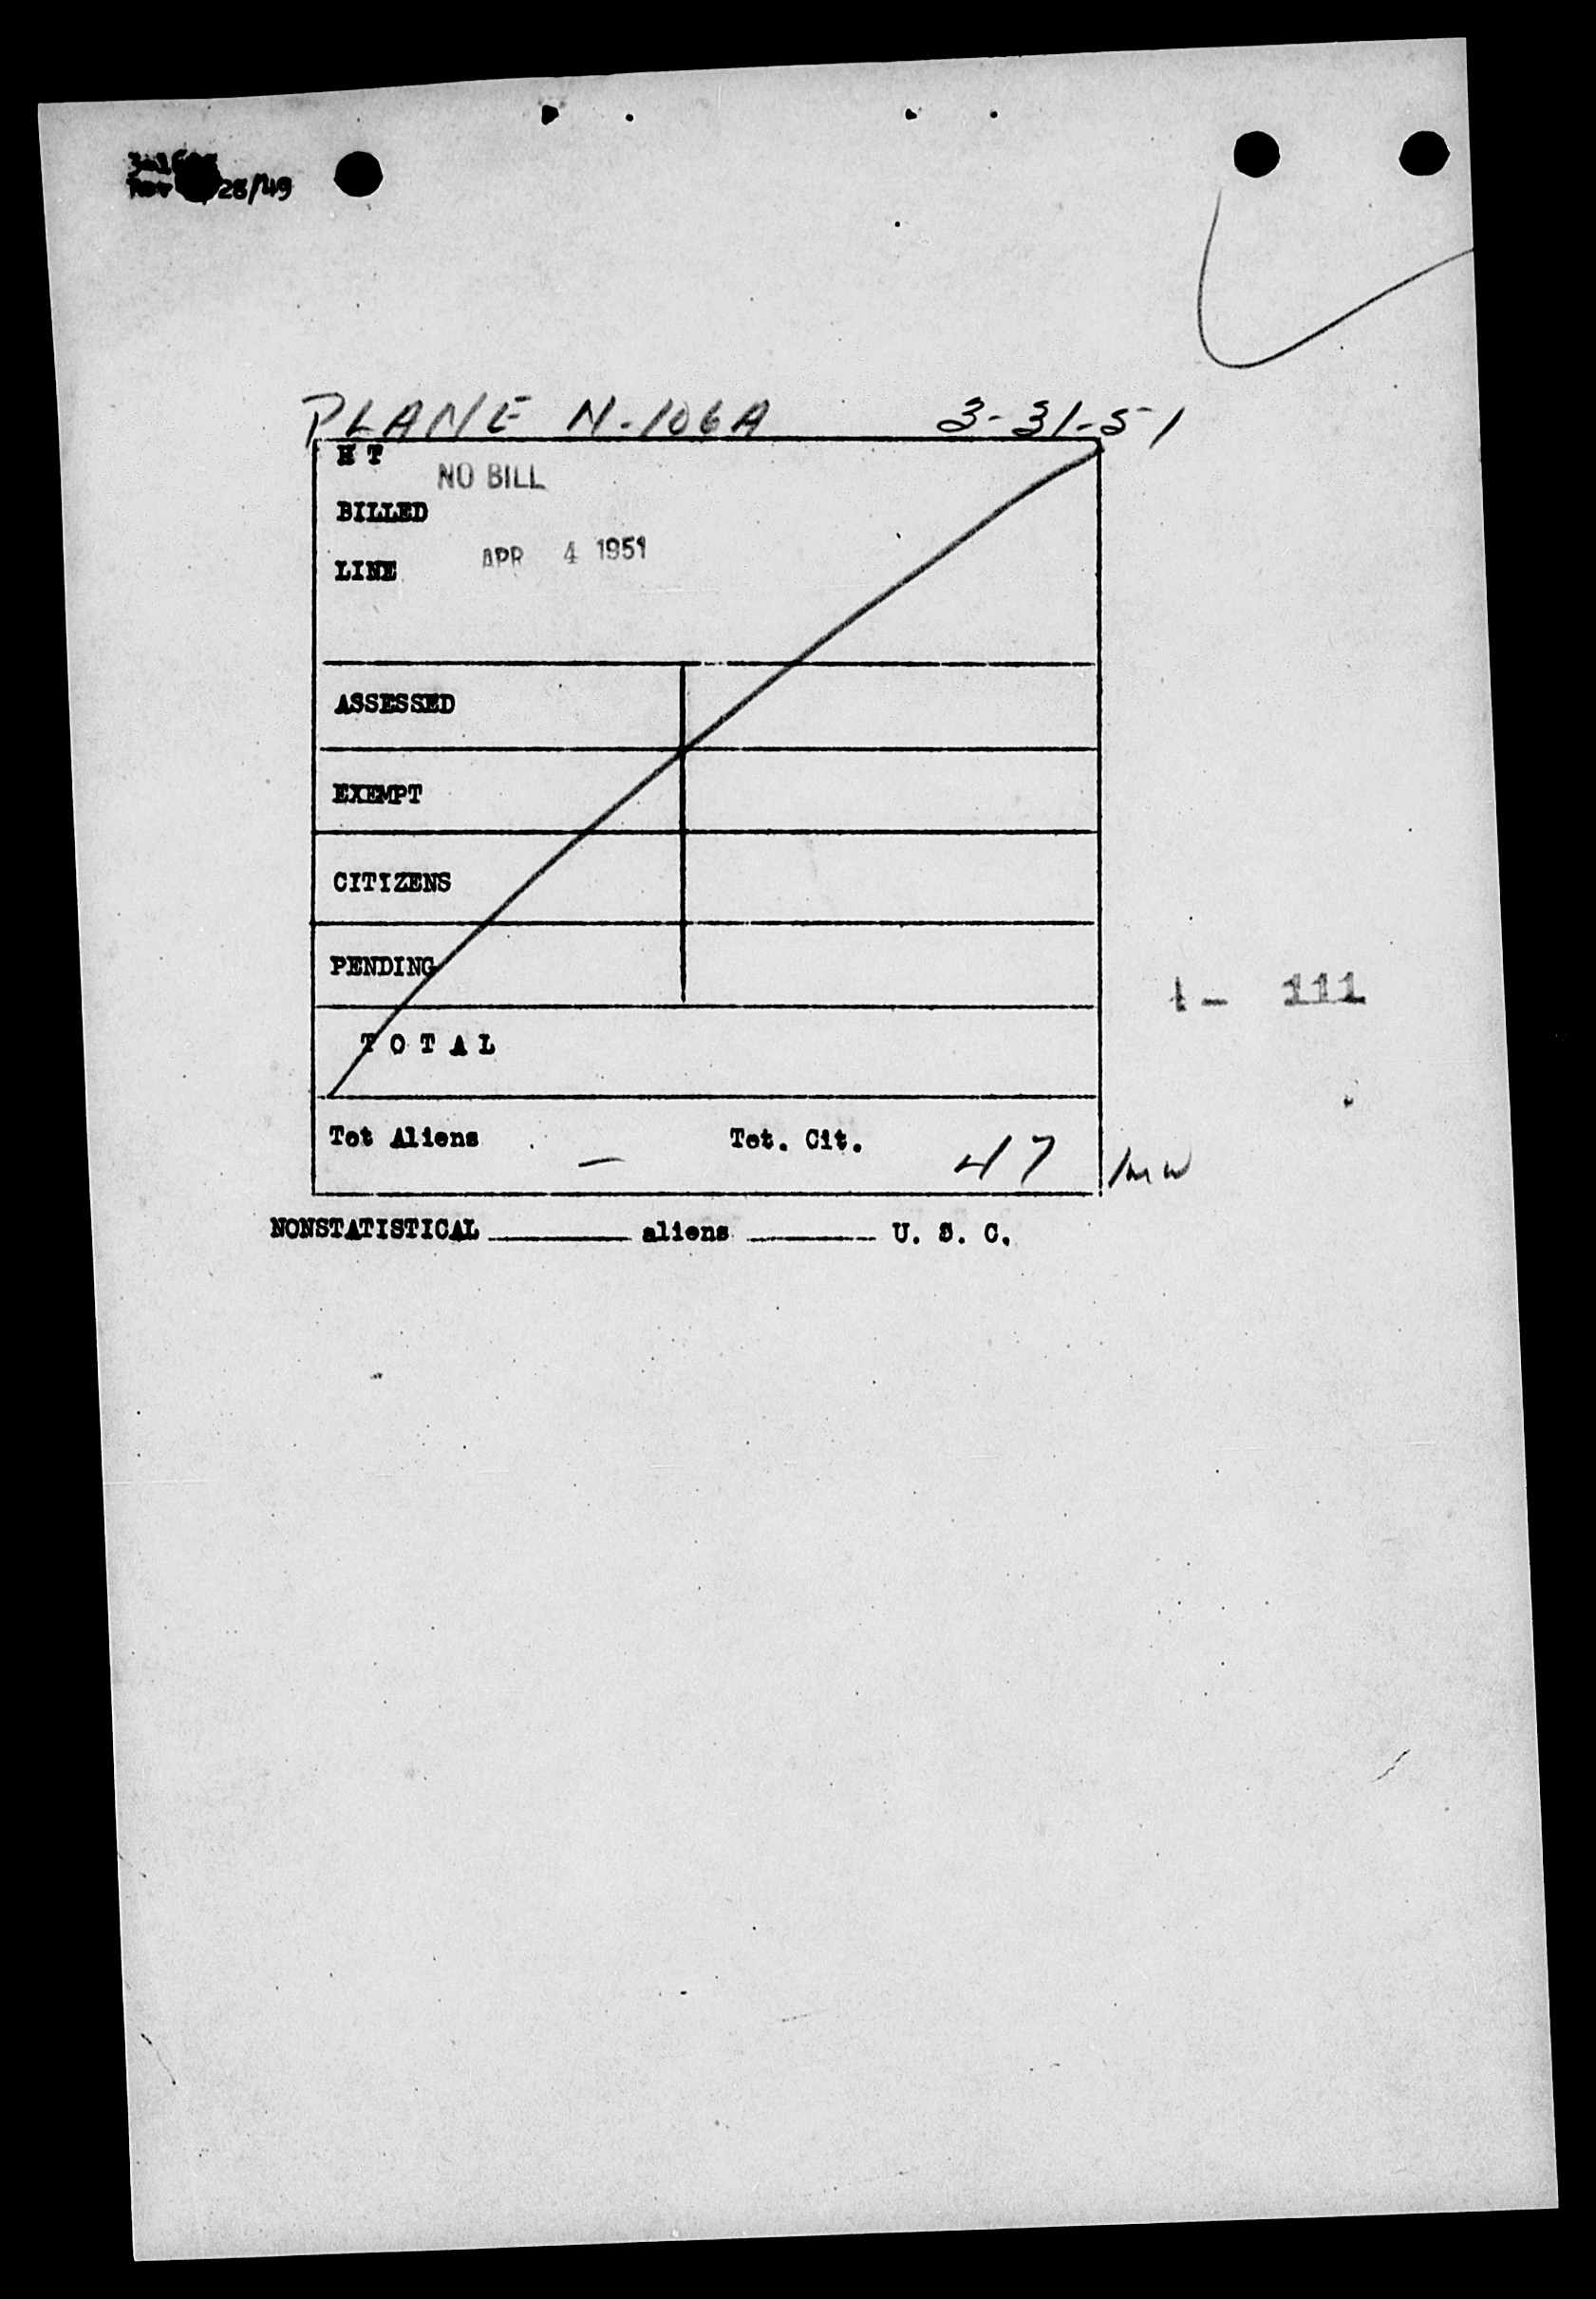 28/49
PLANE N-106A 3-31-51
H T
NO BILL
BILLED
APR 4 1951
LINE
ASSESSED
EXEMPT
CITIZENS
PENDING
1- 111
T O T A L
Tot Aliens — Tot. Cit. 47
NONSTATISTICAL ________ aliens ________ U. S. C.